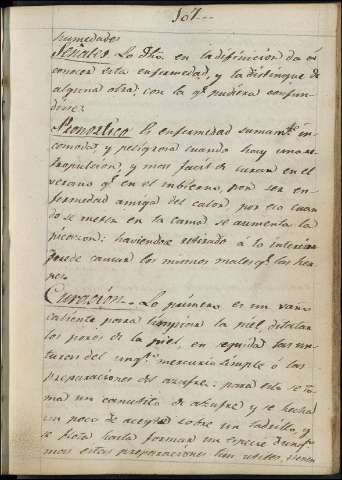 107...
humedades
Señales. Lo dho. en la difinicion da á
conocer esta enfermedad, y la distingue de
alguna otra con la qe. pudiera confun-
dirse.
Pronostico Es enfermedad sumamte. in-
comoda y peligrosa cuando hay una re-
tropulsion, y mas facil de curar en el
verano qe. en el imbierno, por ser en-
fermedad amiga del calor, por eso cuan
do se meten en la cama se aumenta la
picazon: haviendose retirado á lo interior
puede causar los mismos males qe. las her-
pes.
Curasion.. Lo primero es un vaño
caliente para limpiar la piel, dilatar
los poros de la piel, en seguida las un-
turas del ungto. mercurio simple ó las
preparaciones del azufre: para esto se to-
ma un canutillo de azufre y se hecha
un poco de aceyte sobre un ladrillo, y
se frota hasta formar un especie de ungto.
mas estas preparaciones han